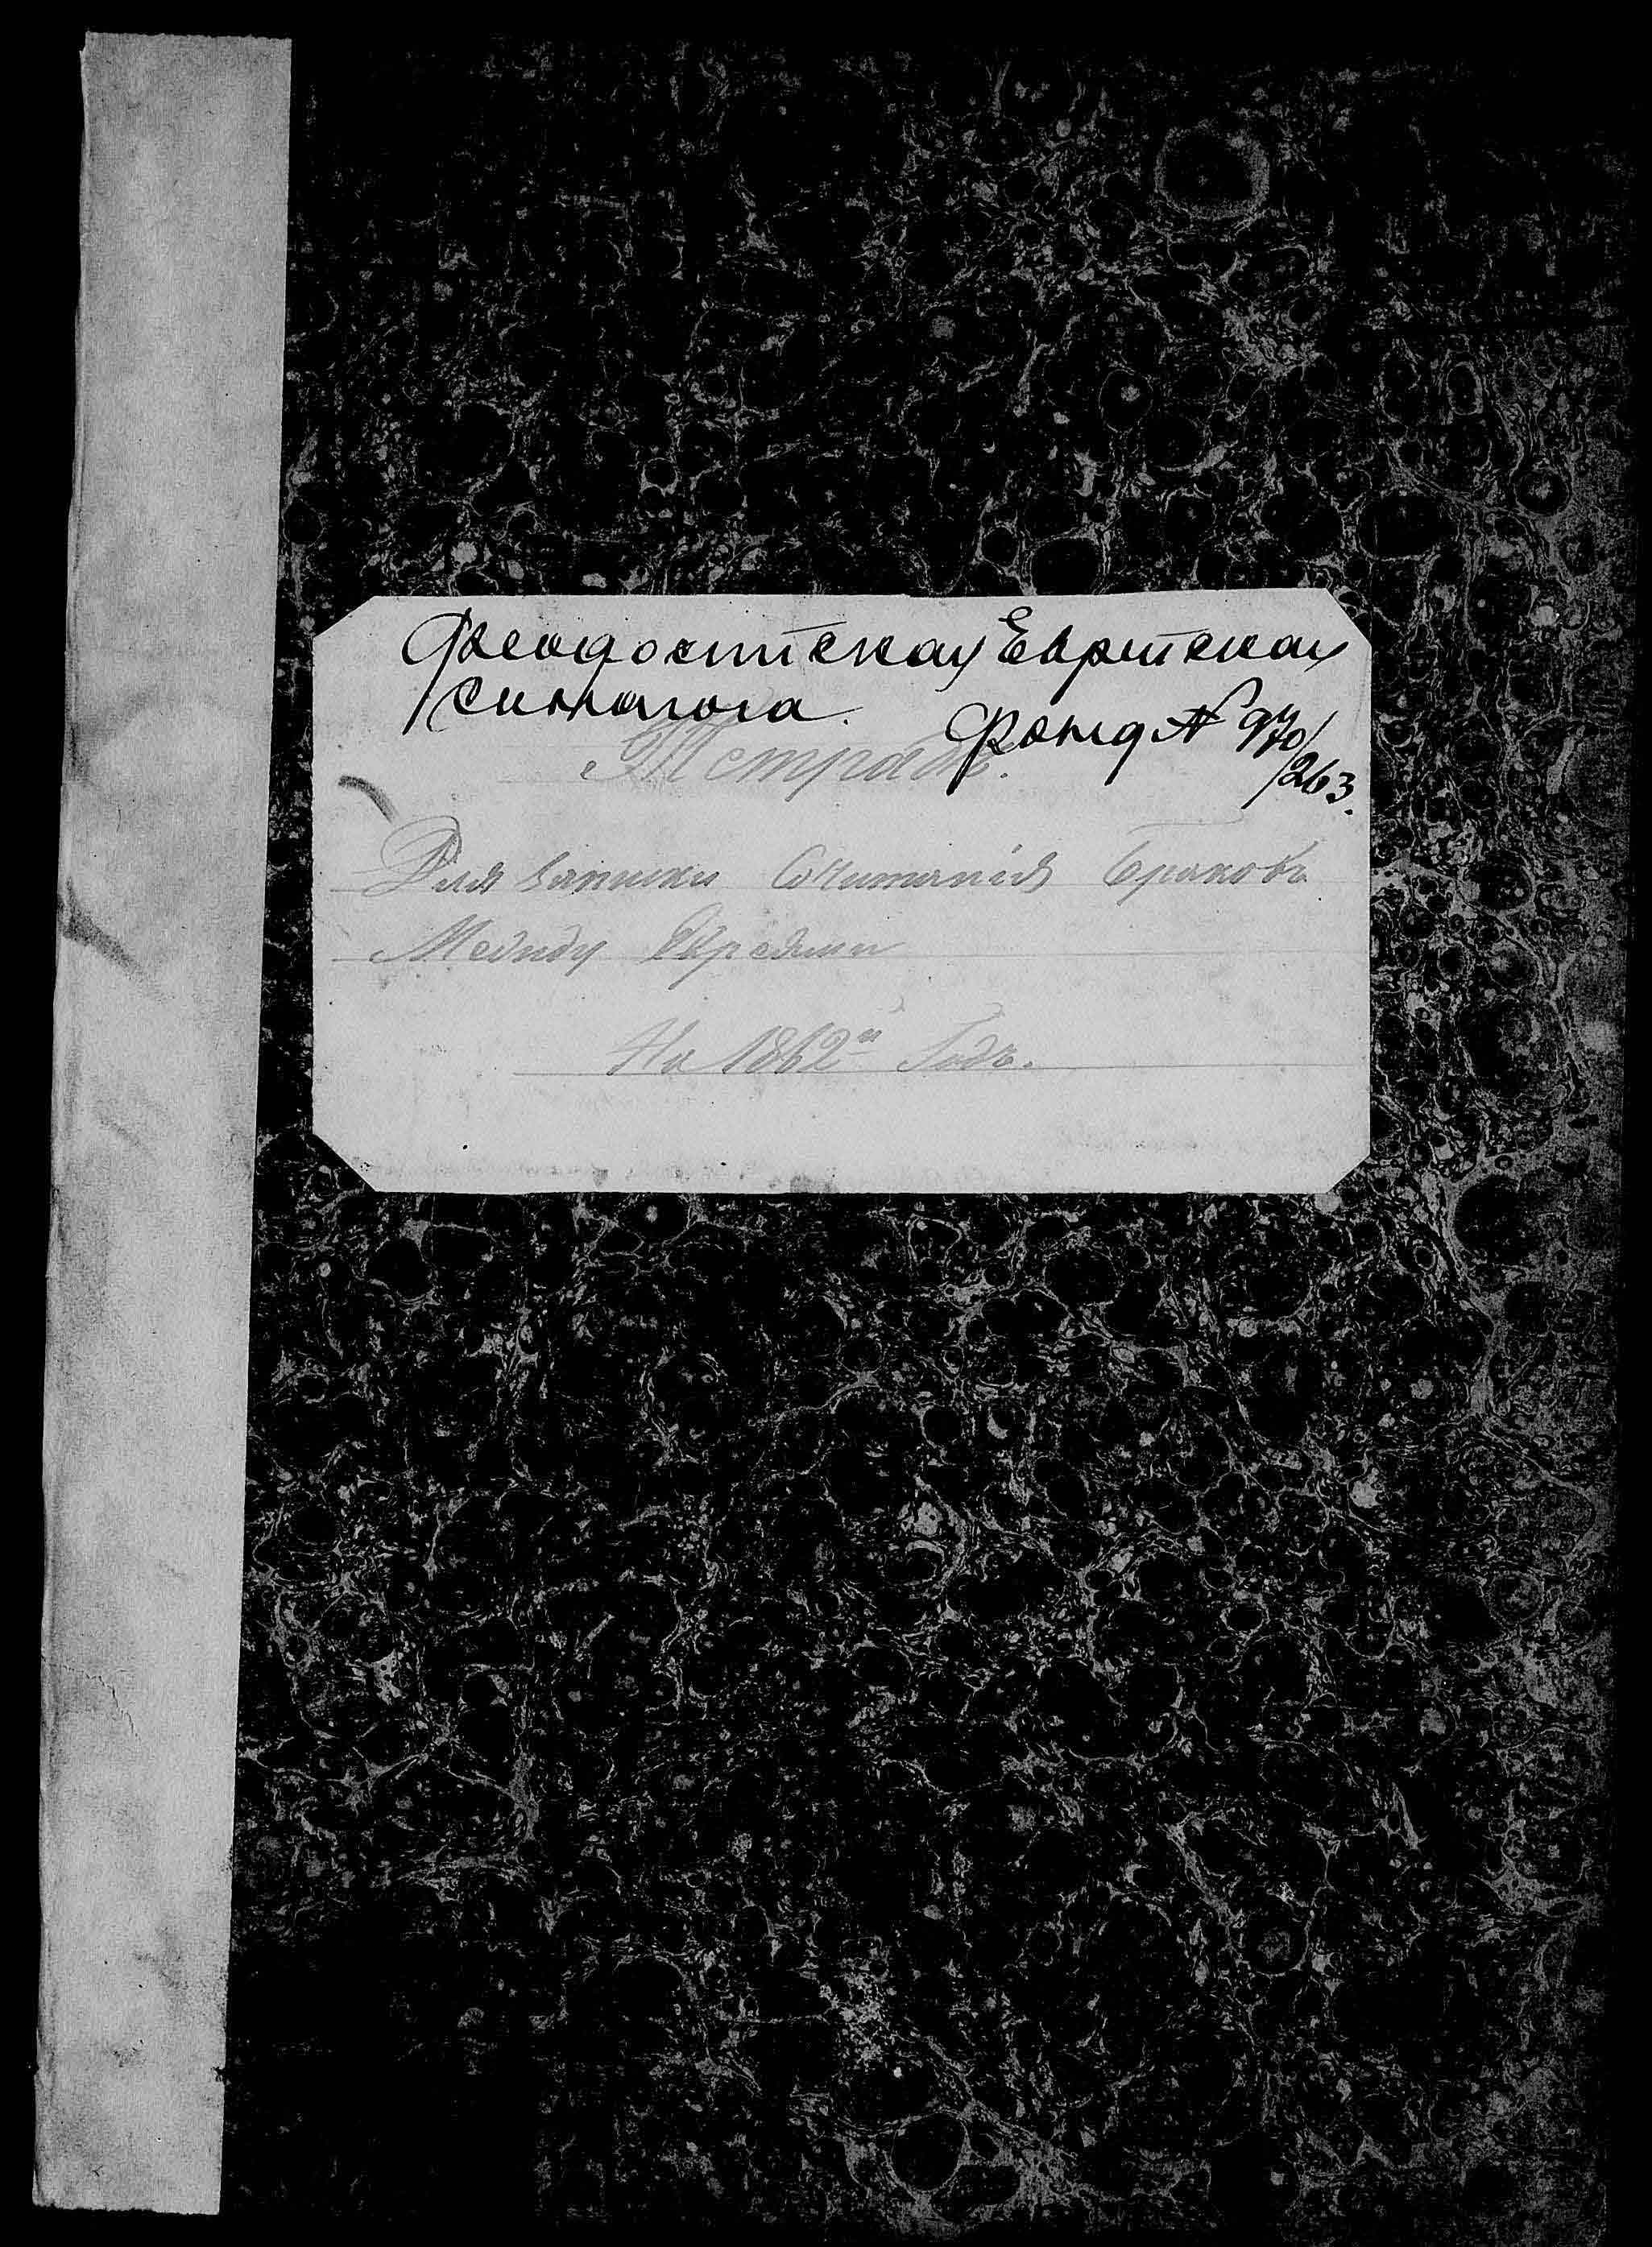 Феодосийская Еврейская
синагога.
Фонд № 970/
263.
Тетрадь.
Для записки Сочитанія Браковъ
Между Евреями
На 1862й Годъ.